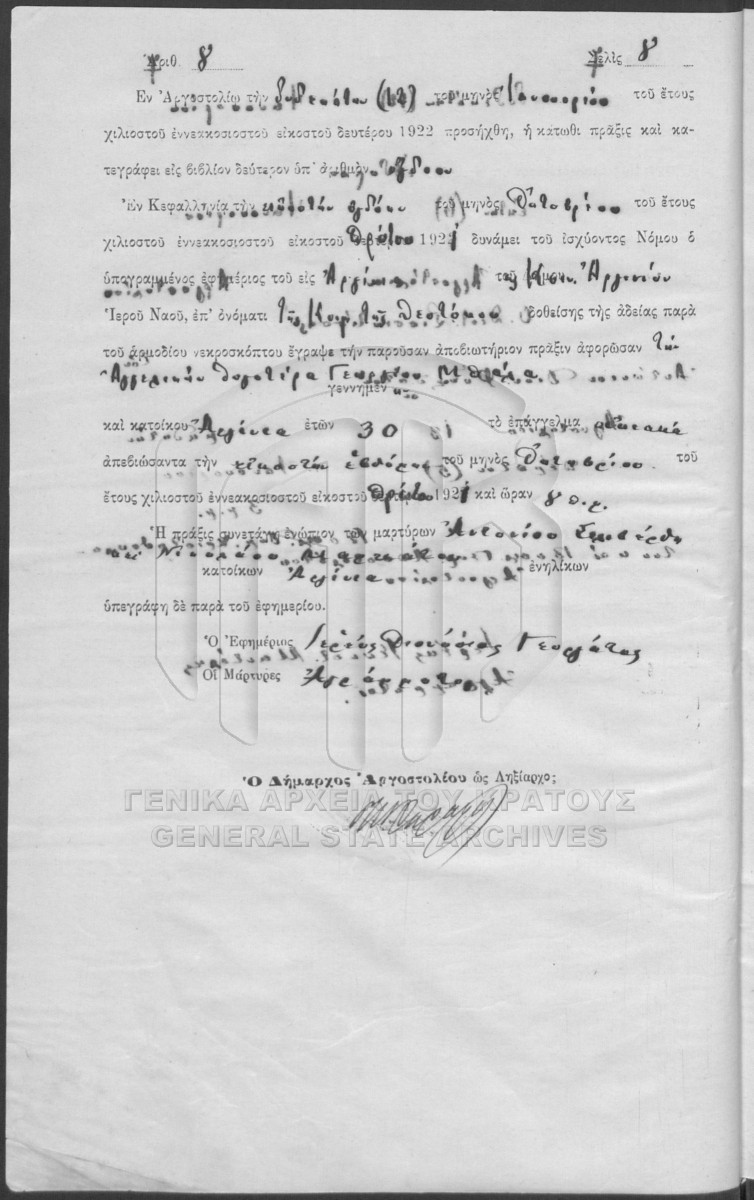 Ἀριθ. 8 Σελὶς 8
Ἐν Ἀργοστολίῳ τὴν δωδεκάτην (12) τοῦ μηνὸς Ἰανουαρίου τοῦ ἔτους
χιλιοστοῦ ἐννεακοσιοστοῦ εἰκοστοῦ δευτέρου 1922 προσήχθη, ἡ κάτωθι πρᾶξις καὶ κα-
τεγράφει εἰς βιβλίον δεύτερον ὑπ' ἀριθμὸν
Ἐν Κεφαλληνίᾳ τὴν εἰκοστὴν ὀγδόην τοῦ μηνὸς Ὀκτωβρίου τοῦ ἔτους
χιλιοστοῦ ἐννεακοσιοστοῦ εἰκοστοῦ πρώτου 1921 δυνάμει τοῦ ἰσχύοντος Νόμου ὁ
ὑπογραμμένος ἐφημέριος τοῦ εἰς Ἀργίνια τοῦ Ἀργινίων
Ἱεροῦ Ναοῦ, ἐπ' ὀνόματι τῆς Κοιμ. τῆς Θεοτόκου δοθείσης τῆς ἀδείας παρὰ
τοῦ ἁρμοδίου νεκροσκόπτου ἔγραψε τὴν παροῦσαν ἀποβιωτήριον πρᾶξιν ἀφορῶσαν τὴν
Ἀγγελικὴν θυγατέρα Γεωργίου
γεννημέν
καὶ κατοίκου Ἀργίνια ἐτῶν 30 τὸ ἐπάγγελμα οἰκιακά
ἀπεβιώσαντα τὴν εἰκοστὴν ἑβδόμην τοῦ μηνὸς Ὀκτωβρίου τοῦ
ἔτους χιλιοστοῦ ἐννεακοσιοστοῦ εἰκοστοῦ πρώτου 1921 καὶ ὥραν 8 π.μ.
Ἡ πρᾶξις συνετάγη ἐνώπιον τῶν μαρτύρων Ἀντωνίου
καὶ Νικολάου
κατοίκων Ἀργίνια ἐνηλίκων
ὑπεγράφη δὲ παρὰ τοῦ ἐφημερίου.
Ὁ Ἐφημέριος Ἱερεὺς Διονύσιος Γεωργάτος
Οἱ Μάρτυρες Ἀγράμματοι
Ὁ Δήμαρχος Ἀργοστολέου ὡς Ληξίαρχος
ΓΕΝΙΚΑ ΑΡΧΕΙΑ ΤΟΥ ΚΡΑΤΟΥΣ
GENERAL STATE ARCHIVES